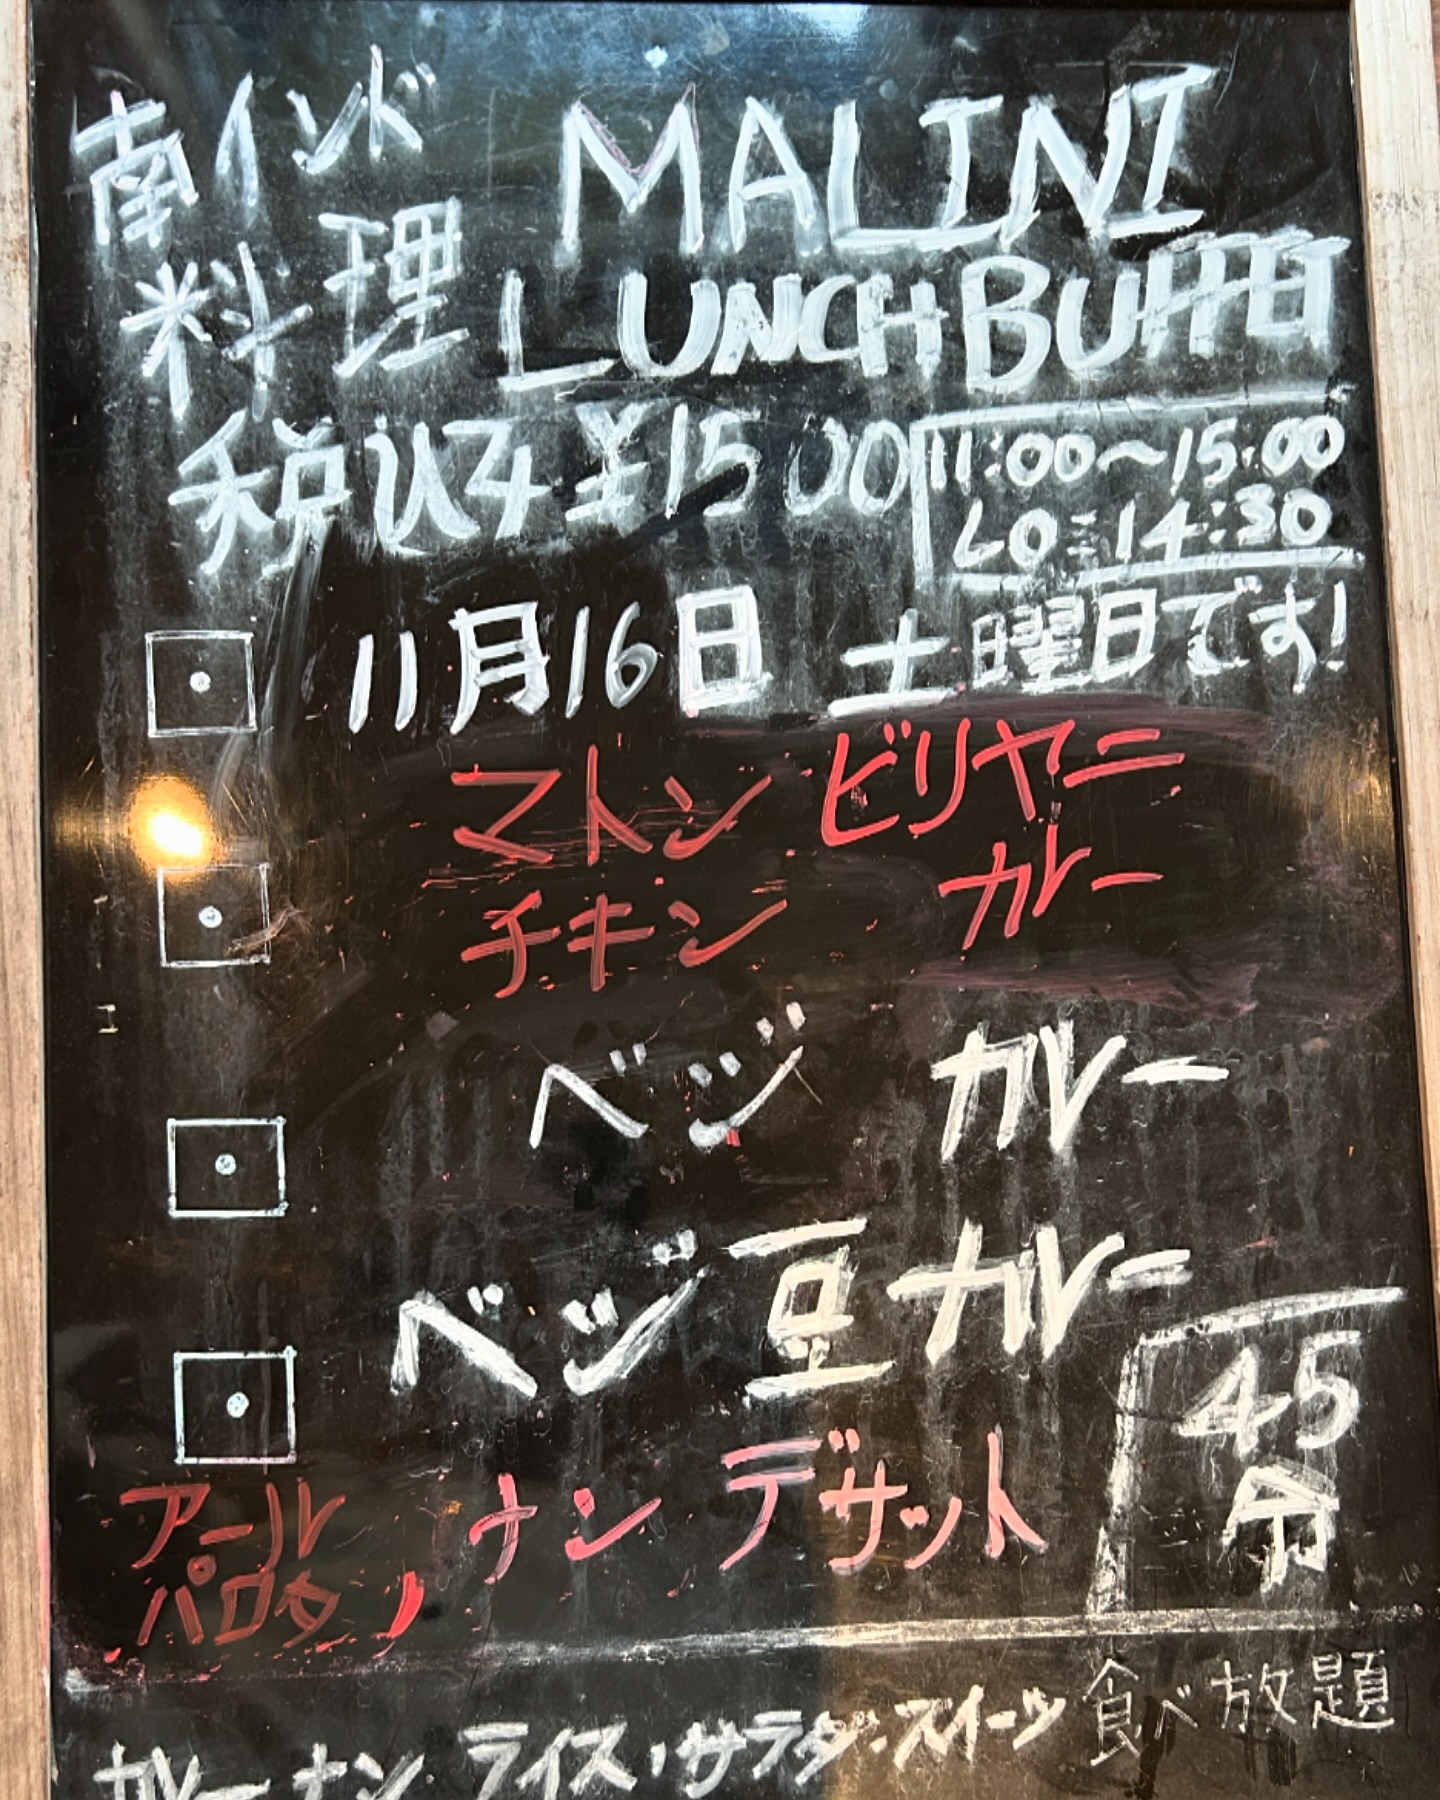 南インド MALINI
料理 LUNCH BUFFET
税込み¥1500 11:00〜15:00
LO:14:30
11月16日 土曜日です!
マトン ビリヤニ
チキン カレー
ベジ カレー
ベジ豆カレー
45
分
アール
パロタ, ナン デザット
食べ放題
カレー ナン ライス,サラダ・スイーツ